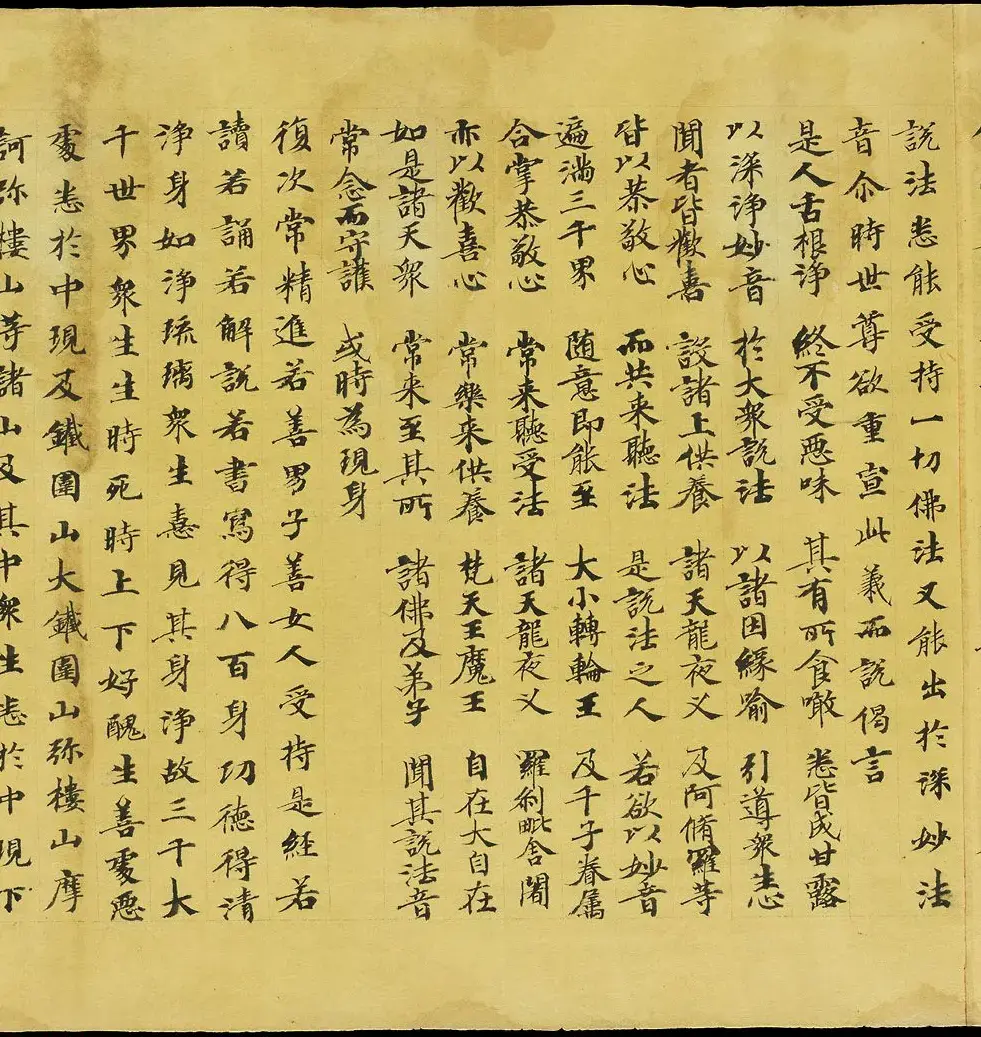 說法悉能受持一切佛法又能出於深妙法
音尒時世尊欲重宣此義而說偈言
是人舌根淨 終不受惡味 其有所食噉 悉皆成甘露
以深淨妙音 於大衆說法 以諸因緣喻 引導衆生心
聞者皆歡喜 設諸上供養 諸天龍夜叉 及阿脩羅等
皆以恭敬心 而共来聽法 是說法之人 若欲以妙音
遍滿三千界 随意即能至 大小轉輪王 及千子眷属
合掌恭敬心 常来聽受法 諸天龍夜叉 羅刹毗舍闍
亦以歡喜心 常樂来供養 梵天王魔王 自在大自在
如是諸天衆 常来至其所 諸佛及弟子 聞其說法音
常念而守護 或時為現身
復次常精進若善男子善女人受持是経若
讀若誦若解說若書寫得八百身功德得清
淨身如淨琉璃衆生憙見其身淨故三千大
千世界衆生生時死時上下好醜生善處惡
處悉於中現及鐵圍山大鐵圍山弥樓山摩
訶弥樓山等諸山及其中衆生悉於中現下